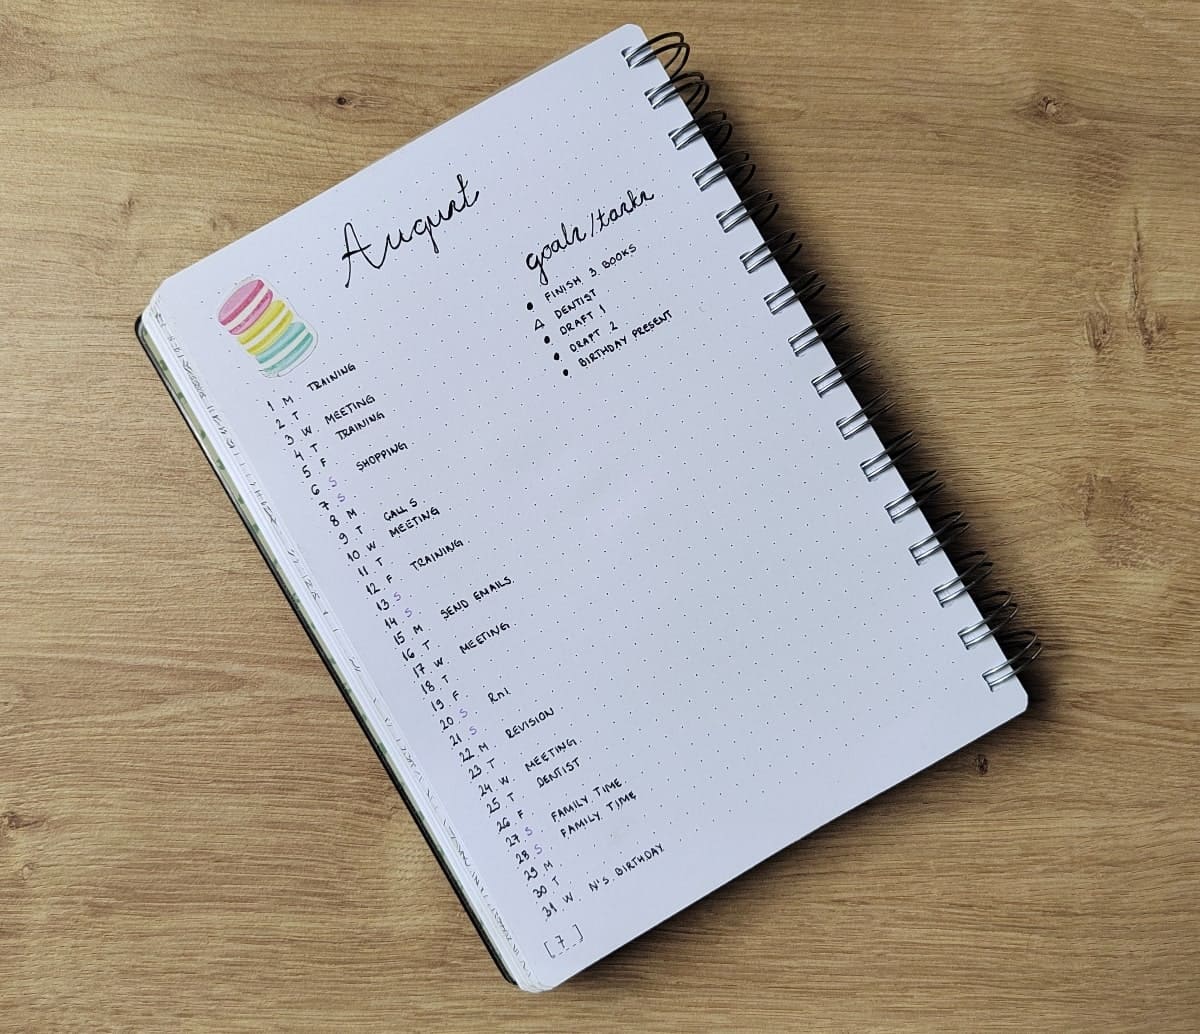 August
1 M TRAINING
2 T
3 W MEETING
4 T TRAINING
5 F
6 S SHOPPING
7 S
8 M
9 T CALLS
10 W MEETING
11 T
12 F TRAINING
13 S
14 S
15 M SEND EMAILS
16 T
17 W MEETING
18 T
19 F
20 S
21 S
22 M REVISION
23 T
24 W MEETING
25 T DENTIST
26 F
27 S FAMILY TIME
28 S FAMILY TIME
29 M
30 T
31 W N's BIRTHDAY
[7]
goals/tasks
• FINISH 3 BOOKS
△ DENTIST
• DRAFT 1
• DRAFT 2
• BIRTHDAY PRESENT